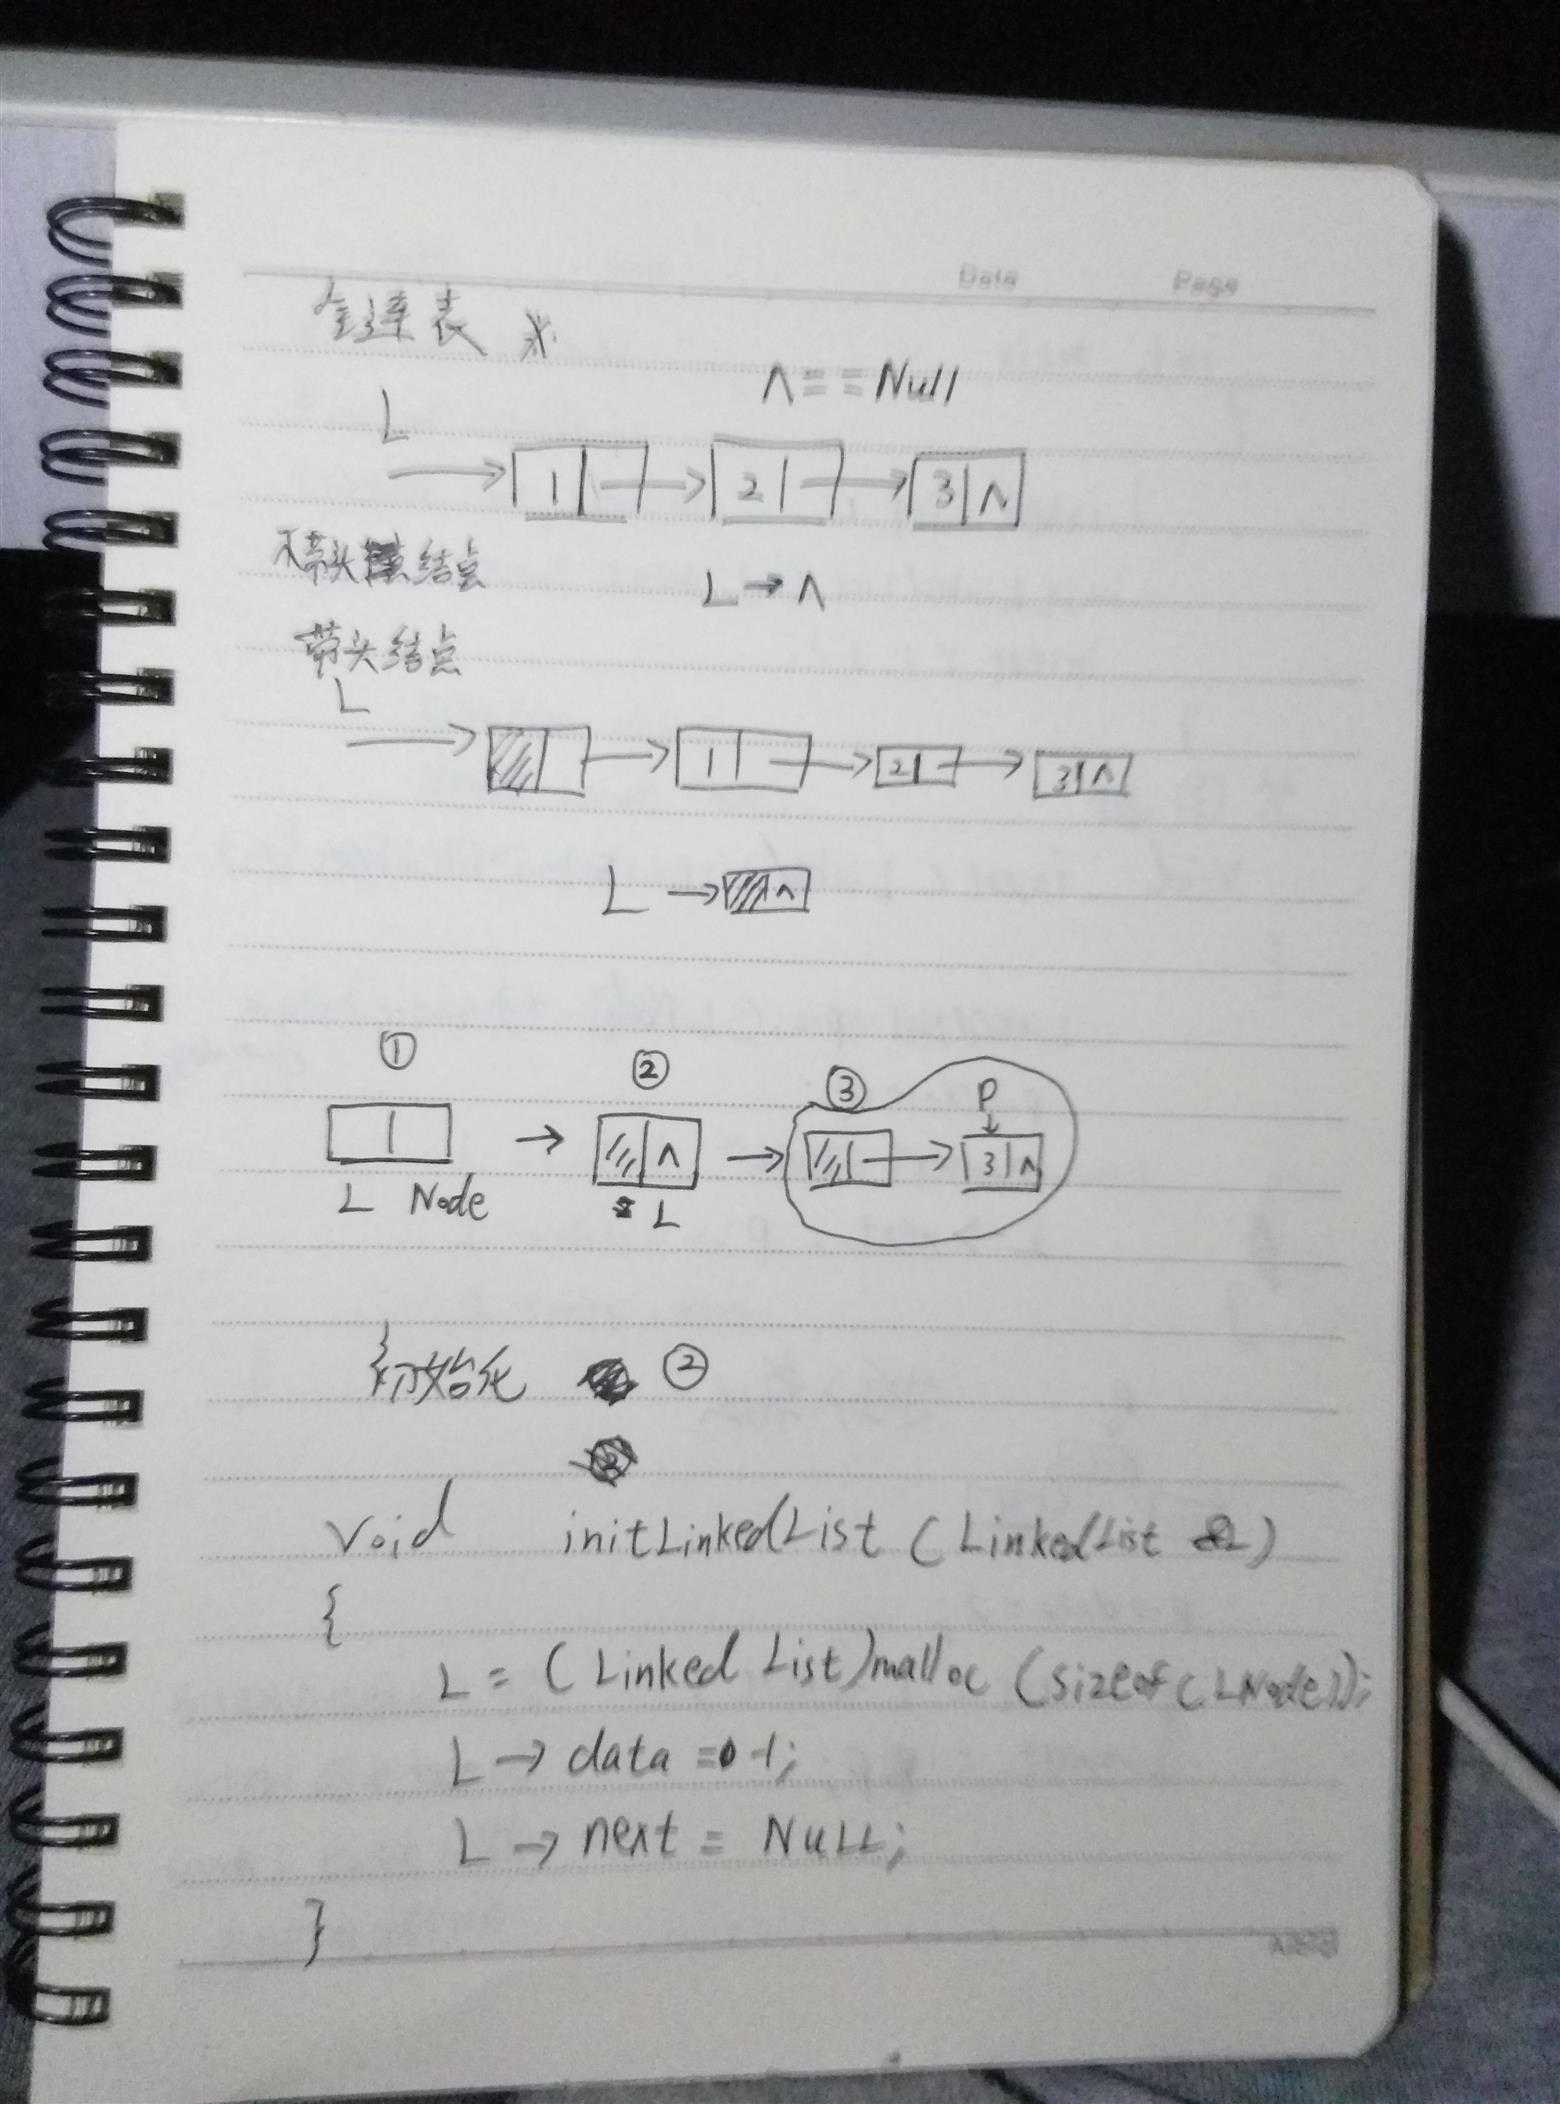 Date Page
链表 *
∧ == Null
L
1 2 3 ∧
不带头结点
L → ∧
带头结点
L
1 2 3 ∧
L → ∧
① ② ③ P
∧ 3 ∧
L Node L
初始化 ②
void initLinkedList (LinkedList &L)
{
L = (Linked List)malloc (sizeof(LNode));
L → data = -1;
L → next = NULL;
}